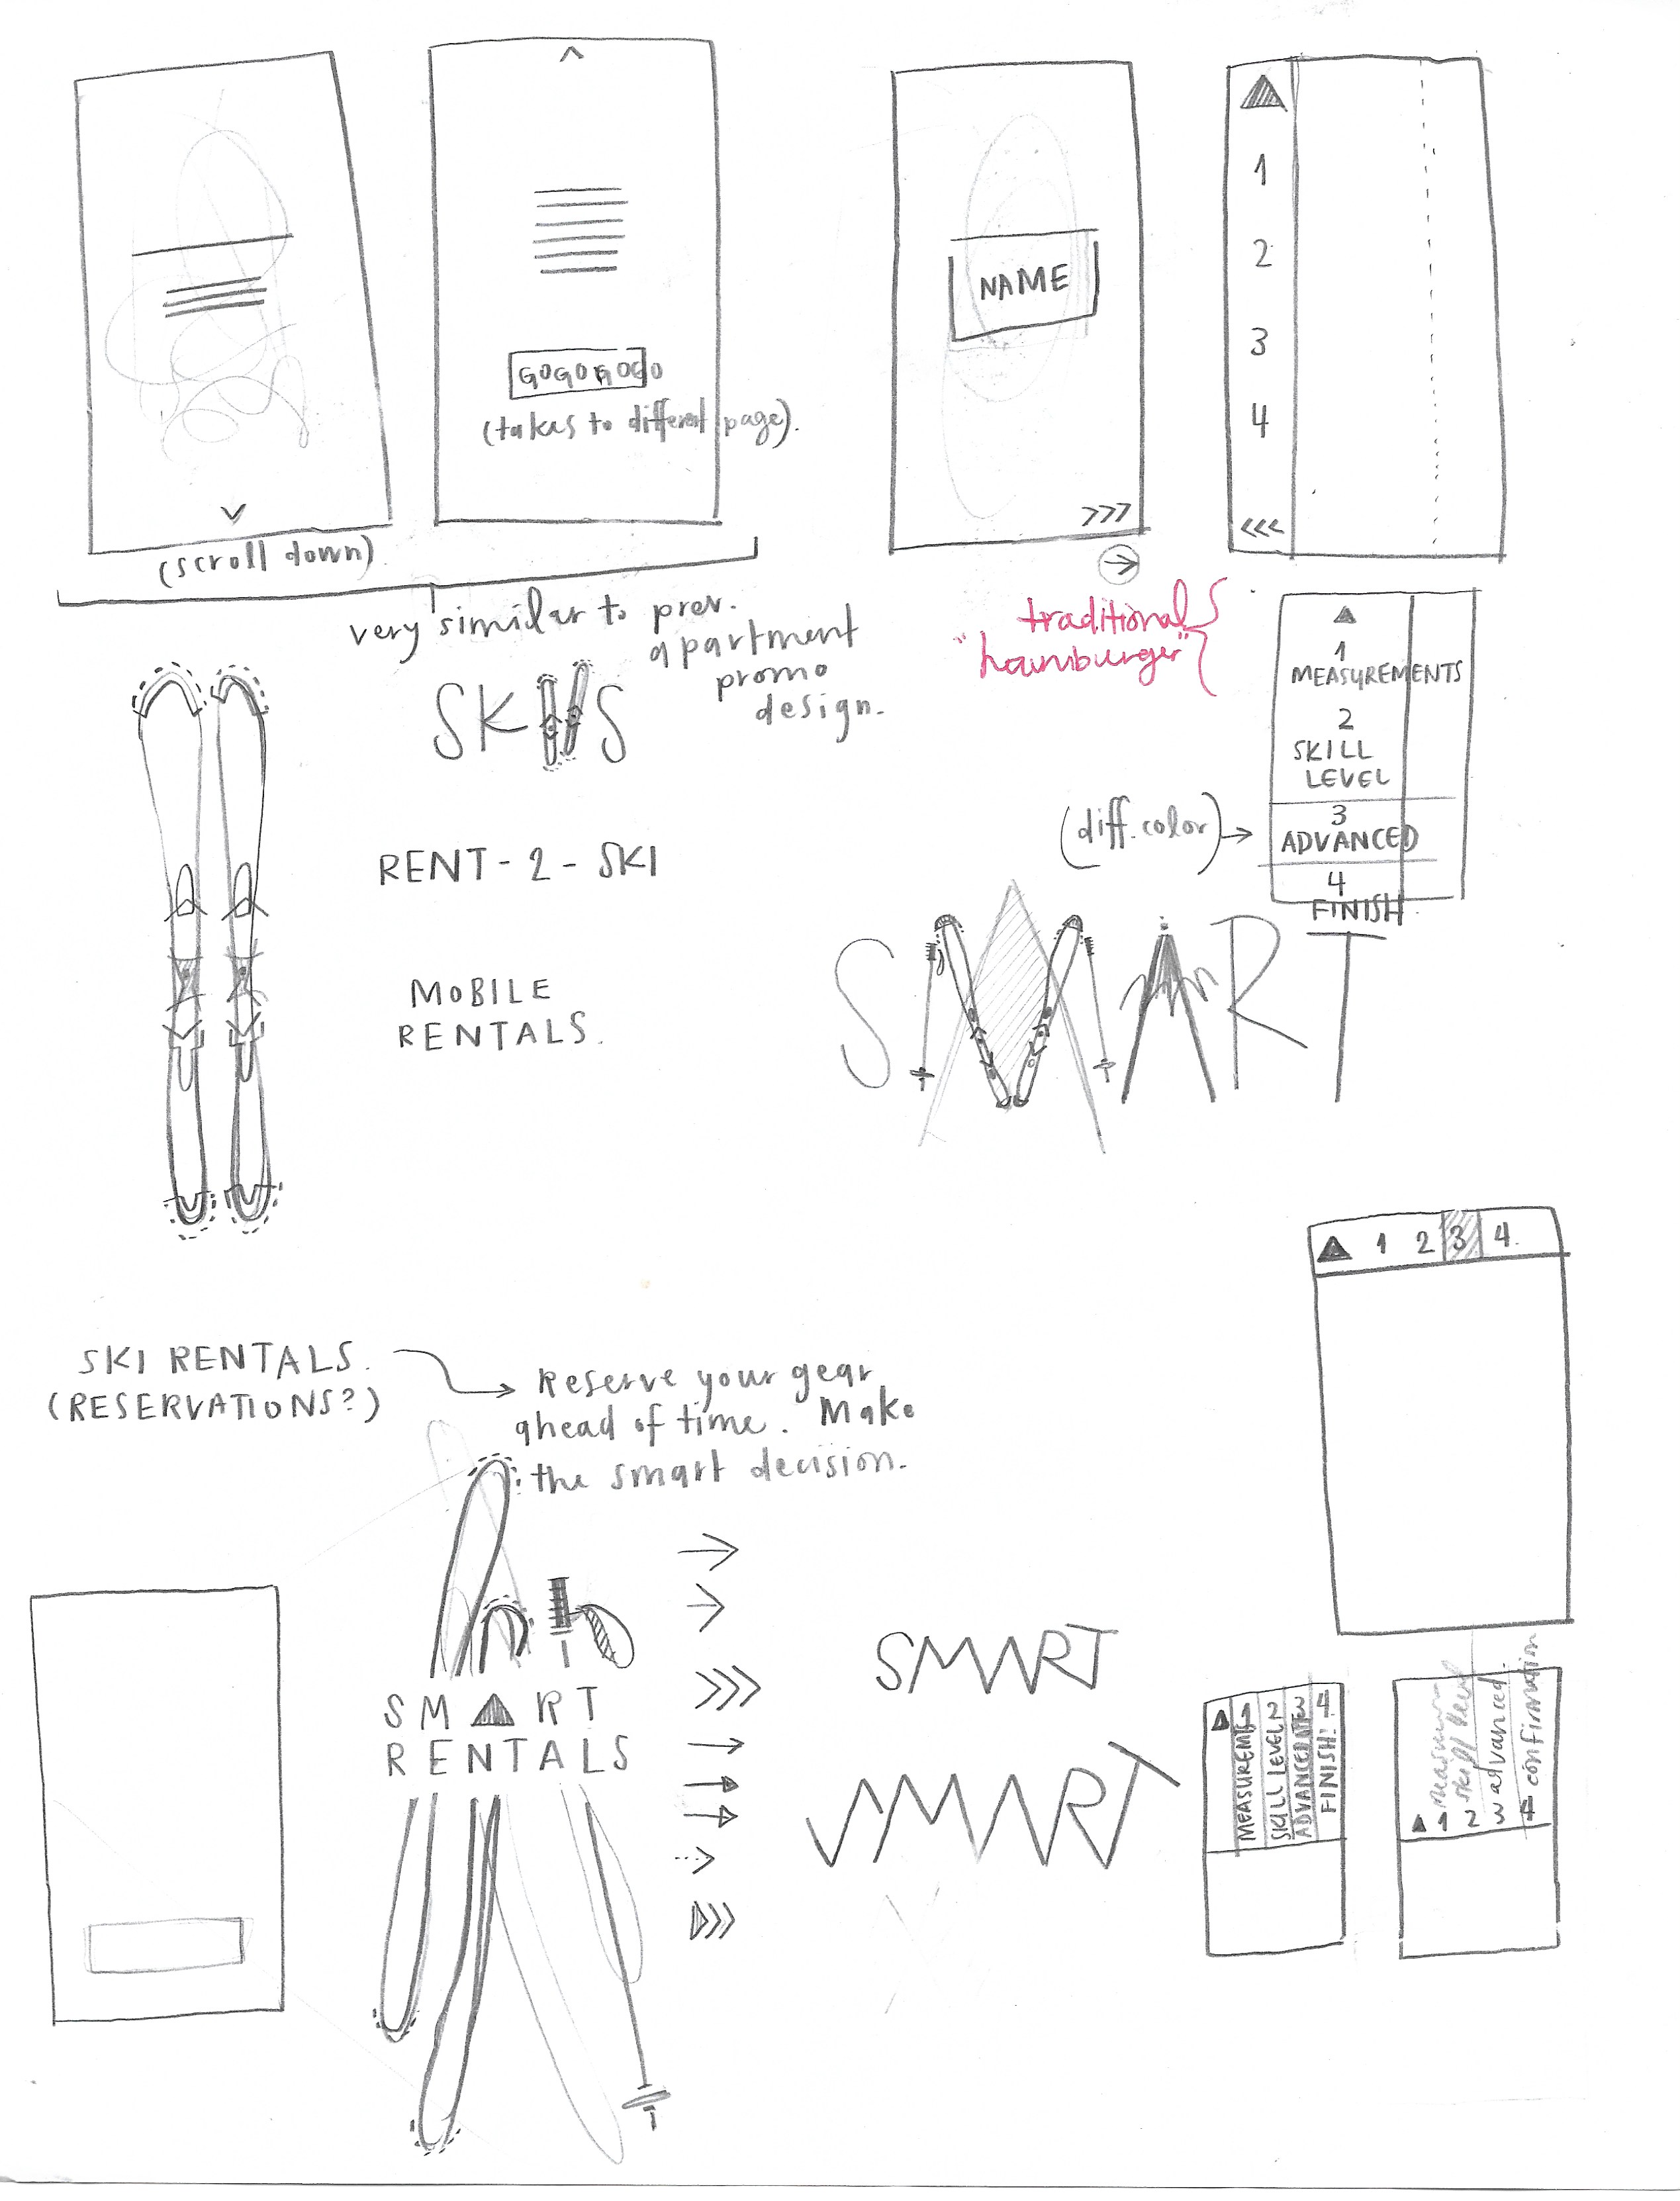 GOGOGOGO
(takes to different page).
(scroll down)
very similar to prev.
apartment
promo
design.
NAME
>>>
1
2
3
4
<<<
traditional
"hamburger"
1
MEASUREMENTS
2
SKILL
LEVEL
(diff. color)
3
ADVANCED
4
FINISH
SKIIS
RENT-2-SKI
MOBILE
RENTALS.
SMART
1 2 3 4.
SKI RENTALS.
(RESERVATIONS?)
Reserve your gear
ahead of time. Make
the smart decision.
SMART
RENTALS
SMART
SMART
1
2
3
4
SKILL LEVEL
FINISH!
1
2
skill level
3 advanced
4 confirmation